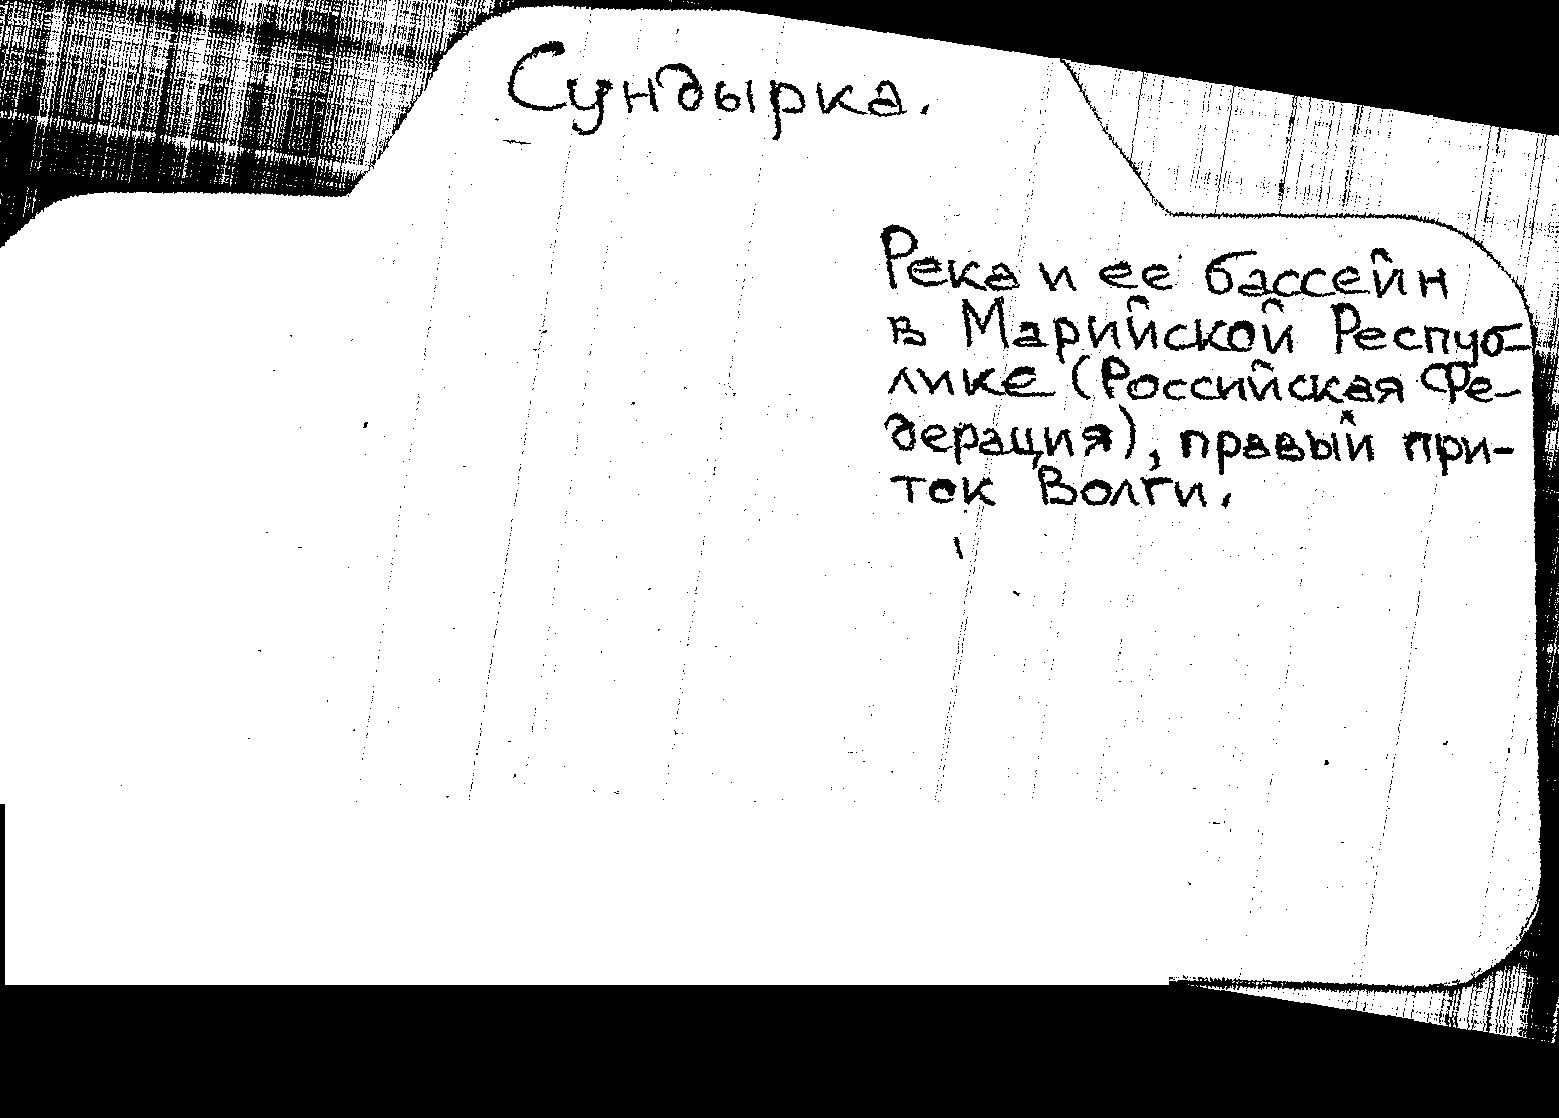 Сундырка.
Река и ее бассейн
в Марийской Респуб-
лике (Российская Фе-
дерация), правый при-
ток Волги.